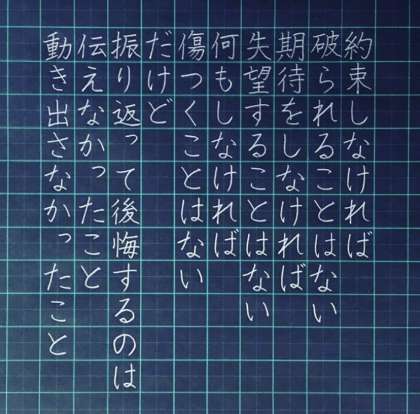 約束しなければ
破られることはない
期待をしなければ
失望することはない
何もしなければ
傷つくことはない
だけど
振り返って後悔するのは
伝えなかったことと
動き出さなかったこと